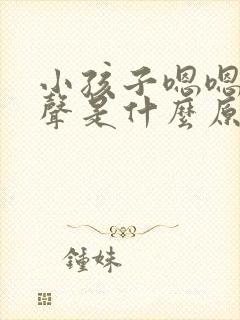 小孩子嗯嗯
聲是什麼原
鍾妹